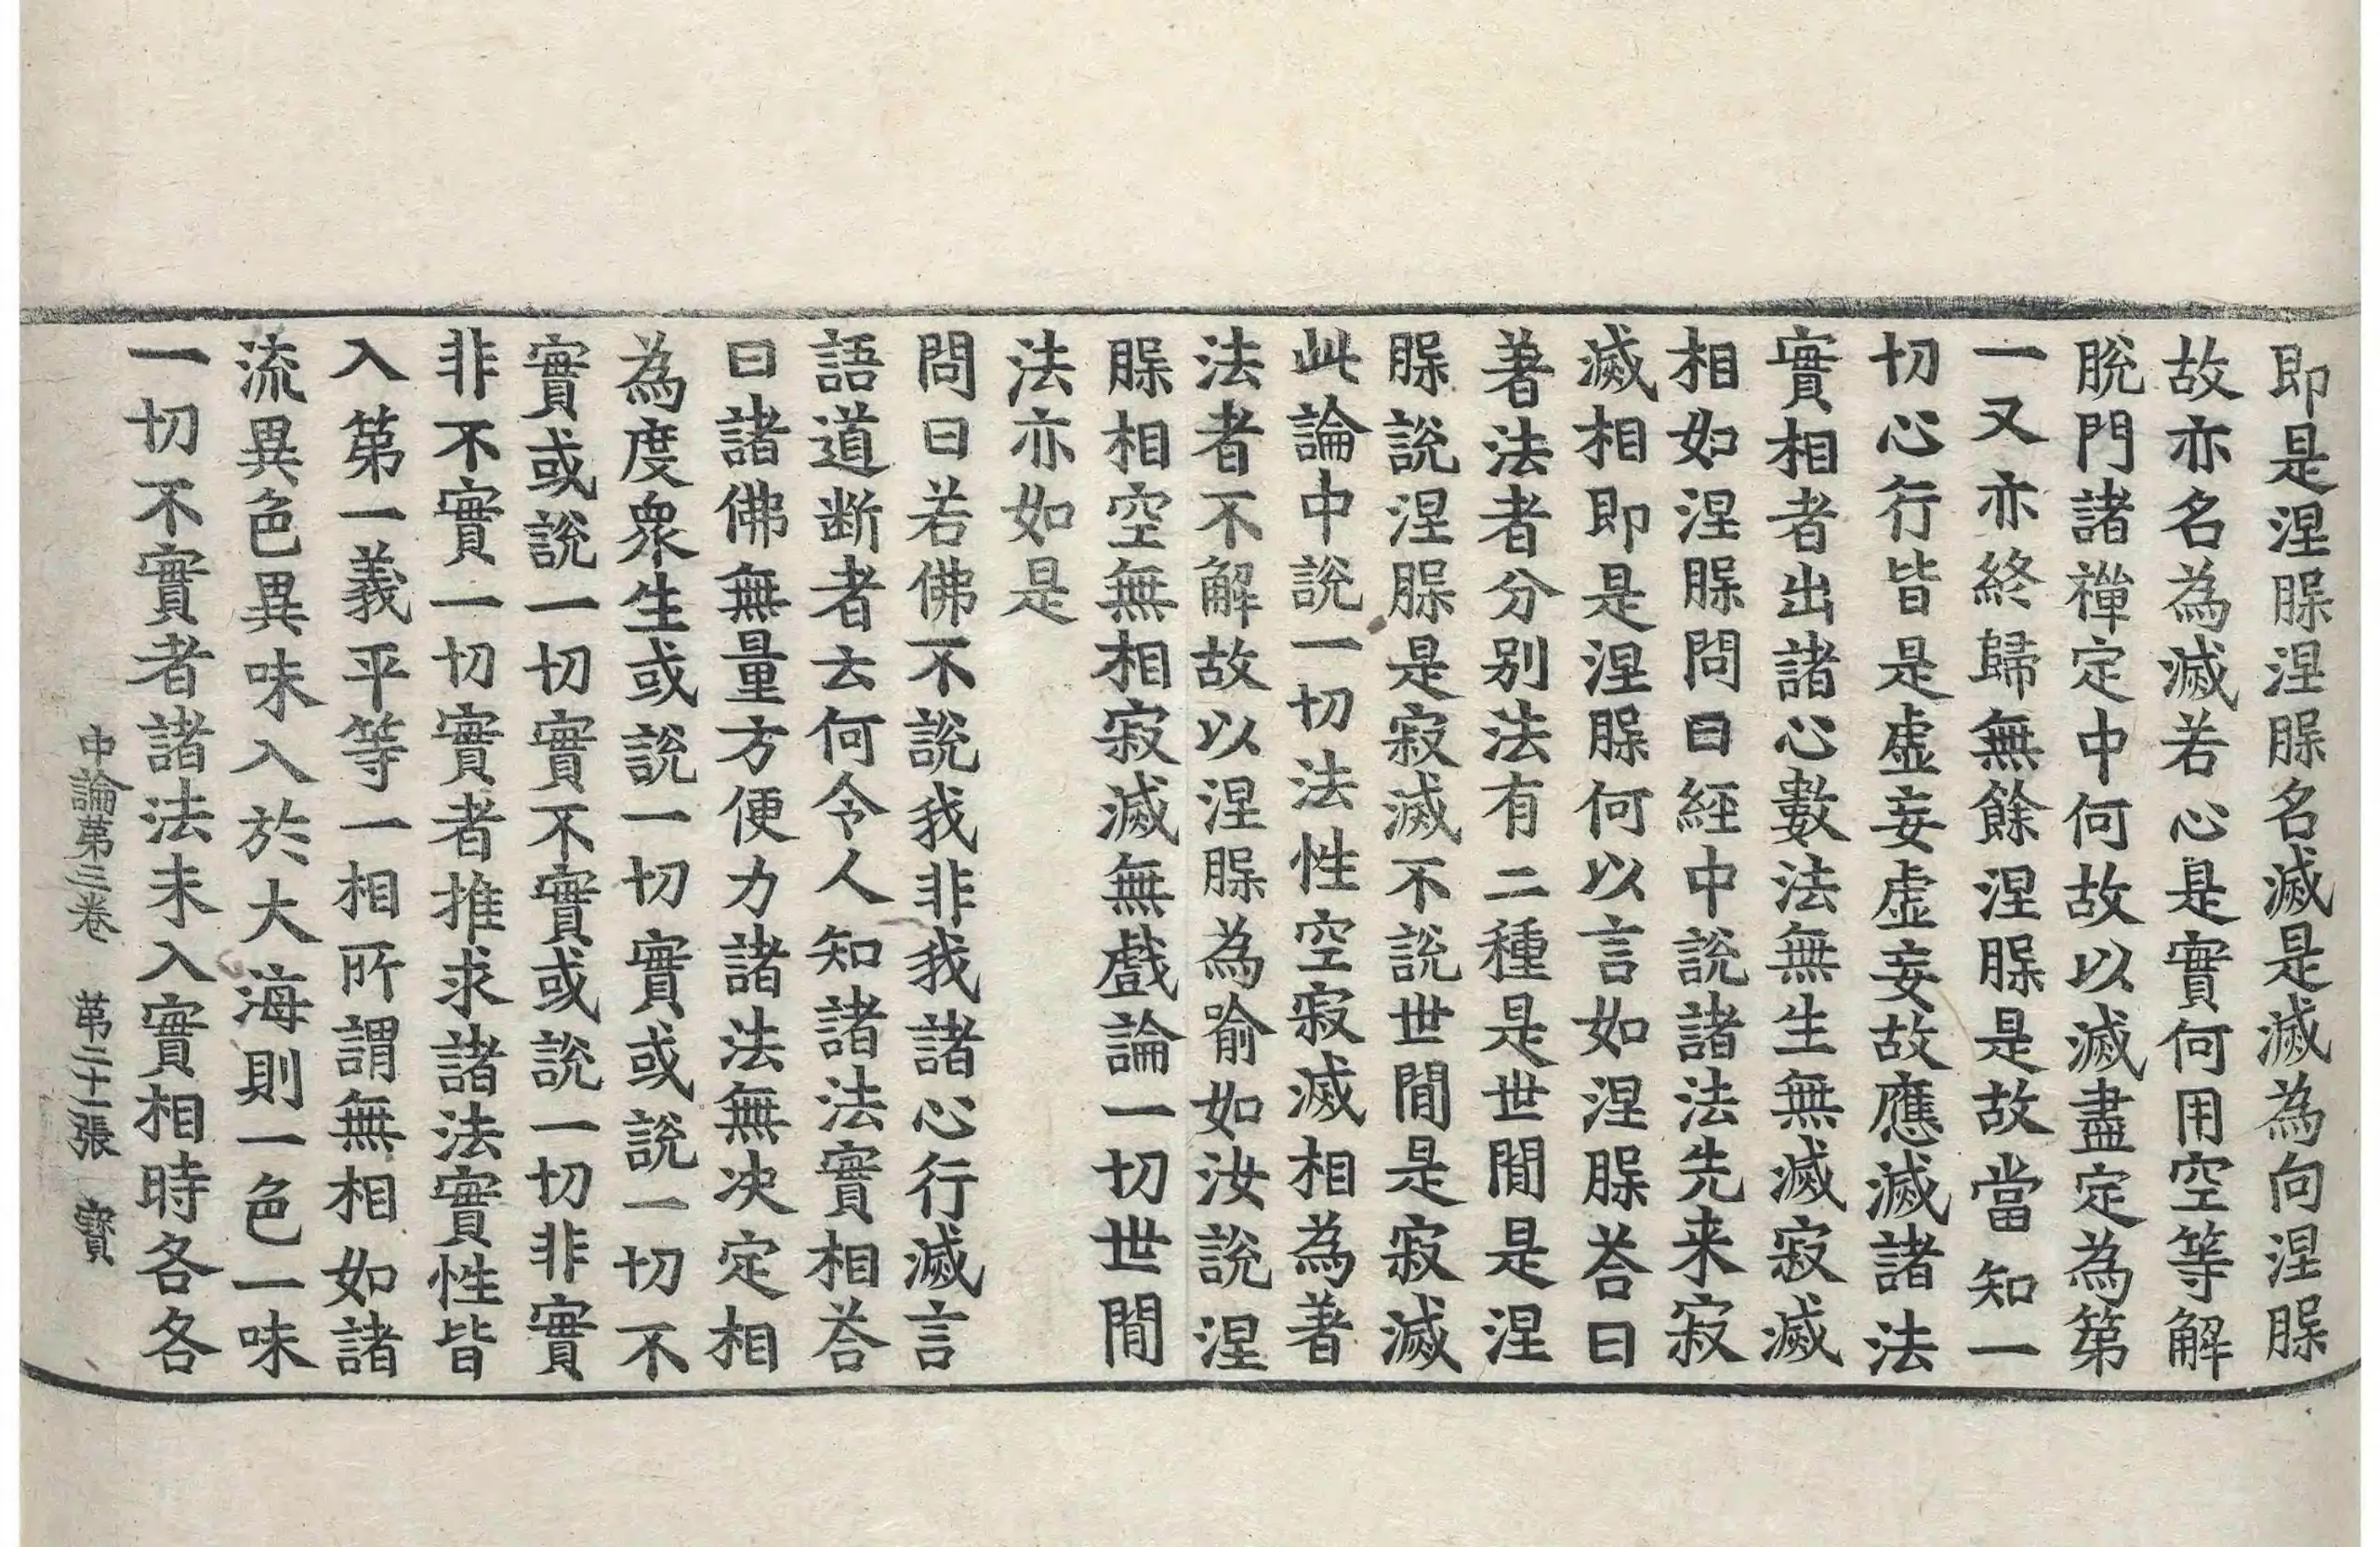 即是涅脲涅脲名滅是滅為向涅脲
故亦名為滅若心是實何用空等解
脫門諸禪定中何故以滅盡定為第
一又亦終歸無餘涅脲是故當知一
切心行皆是虛妄虛妄故應滅諸法
實相者出諸心數法無生無滅寂滅
相如涅脲問曰經中說諸法先来寂
滅相即是涅脲何以言如涅脲荅曰
著法者分別法有二種是世閒是涅
脲說涅脲是寂滅不說世閒是寂滅
此論中說一切法性空寂滅相為著
法者不解故以涅脲為喻如汝說涅
脲相空無相寂滅無戲論一切世閒
法亦如是
問曰若佛不說我非我諸心行滅言
語道断者云何令人知諸法實相荅
曰諸佛無量方便力諸法無决定相
為度衆生或說一切實或說一切不
實或說一切實不實或說一切非實
非不實一切實者推求諸法實性皆
入第一義平等一相所謂無相如諸
流異色異味入於大海則一色一味
一切不實者諸法未入實相時各各
中論第三卷 第二十二張 寳